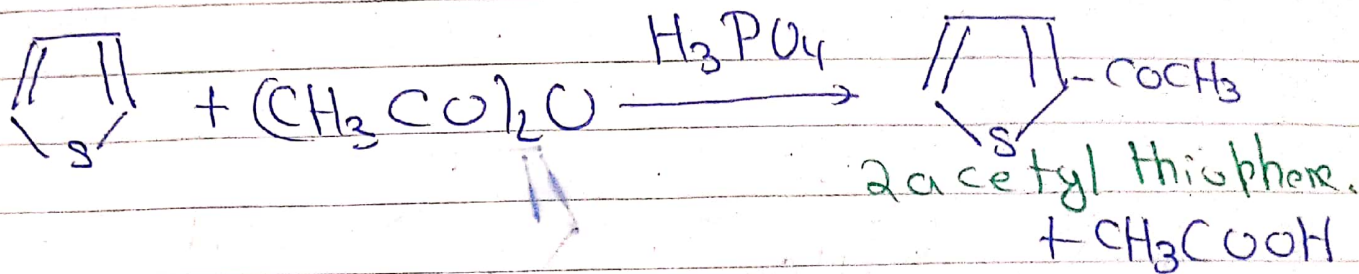 S + (CH3CO)2O H3PO4 → S - COCH3
2 acetyl thiophene.
+ CH3COOH